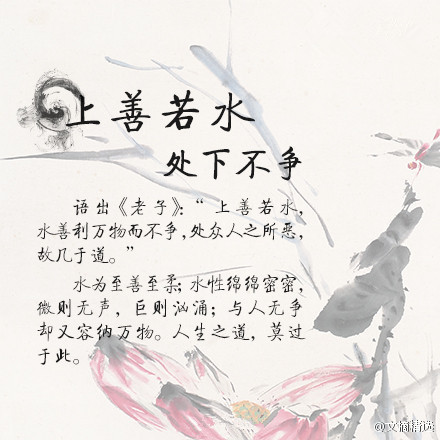 上善若水
处下不争
语出《老子》：“上善若水，
水善利万物而不争，处众人之所恶，
故几于道。”
水为至善至柔；水性绵绵密密，
微则无声，巨则汹涌；与人无争
却又容纳万物。人生之道，莫过
于此。
@文摘精选